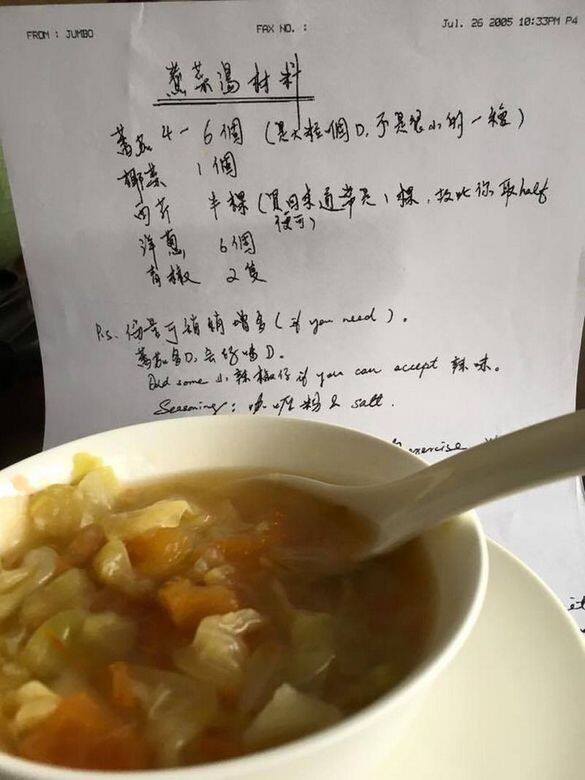 FROM : JUMBO FAX NO. : Jul. 26 2005 10:33PM P4
蕃茄 4－6個 (是大粒嗰D, 不是很小的一種)
椰菜 1個
西芹 半棵 (買回來通常是1棵, 故此你取half
便可)
洋蔥 6個
青椒 2隻
P.s. 份量可稍稍增多 (if you need).
蕃茄多D, 會好啲D.
Add some 小辣椒仔 if you can accept 辣味.
Seasoning: 咖喱粉 & salt.
exercise